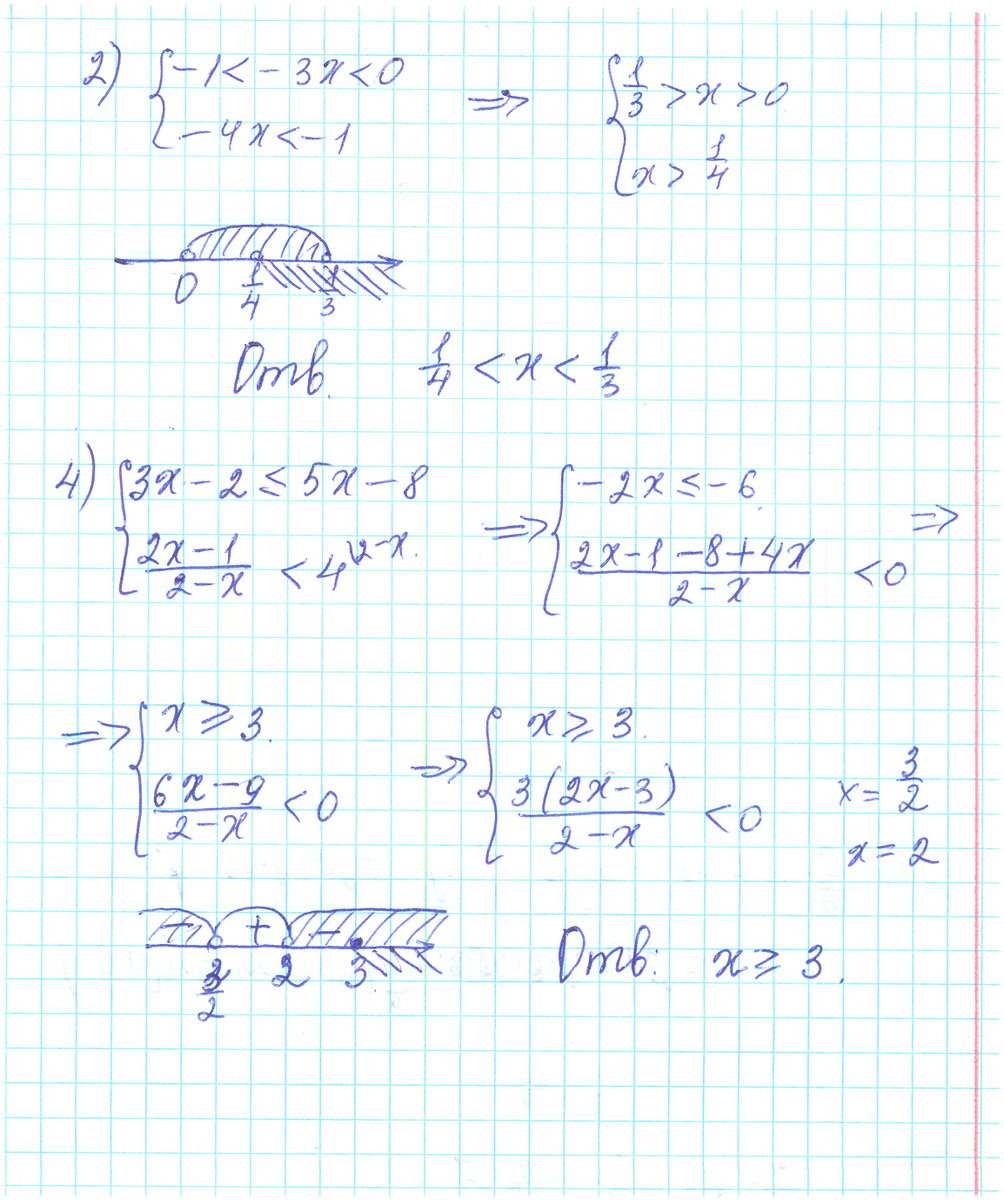 2) { -1 < -3x < 0 ⇒ { 1/3 > x > 0
-4x < -1 x > 1/4
0 1/4 1/3
Отв. 1/4 < x < 1/3
4) { 3x - 2 ≤ 5x - 8 ⇒ { -2x ≤ -6 ⇒
(2x-1)/(2-x) < 4 \2-x (2x-1-8+4x)/(2-x) < 0
⇒ { x ≥ 3. ⇒ { x ≥ 3.
(6x-9)/(2-x) < 0 3(2x-3)/(2-x) < 0 x = 3/2
x = 2
- + -
3/2 2 3
Отв: x ≥ 3.